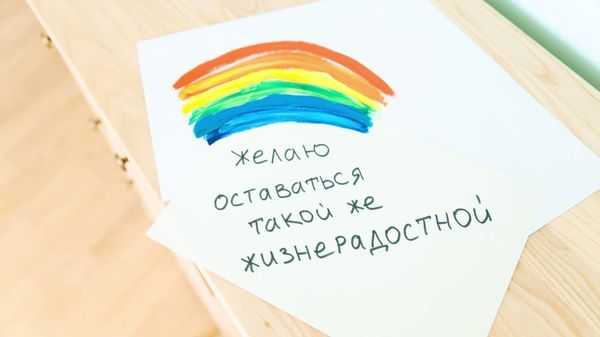 желаю
оставаться
такой же
жизнерадостной